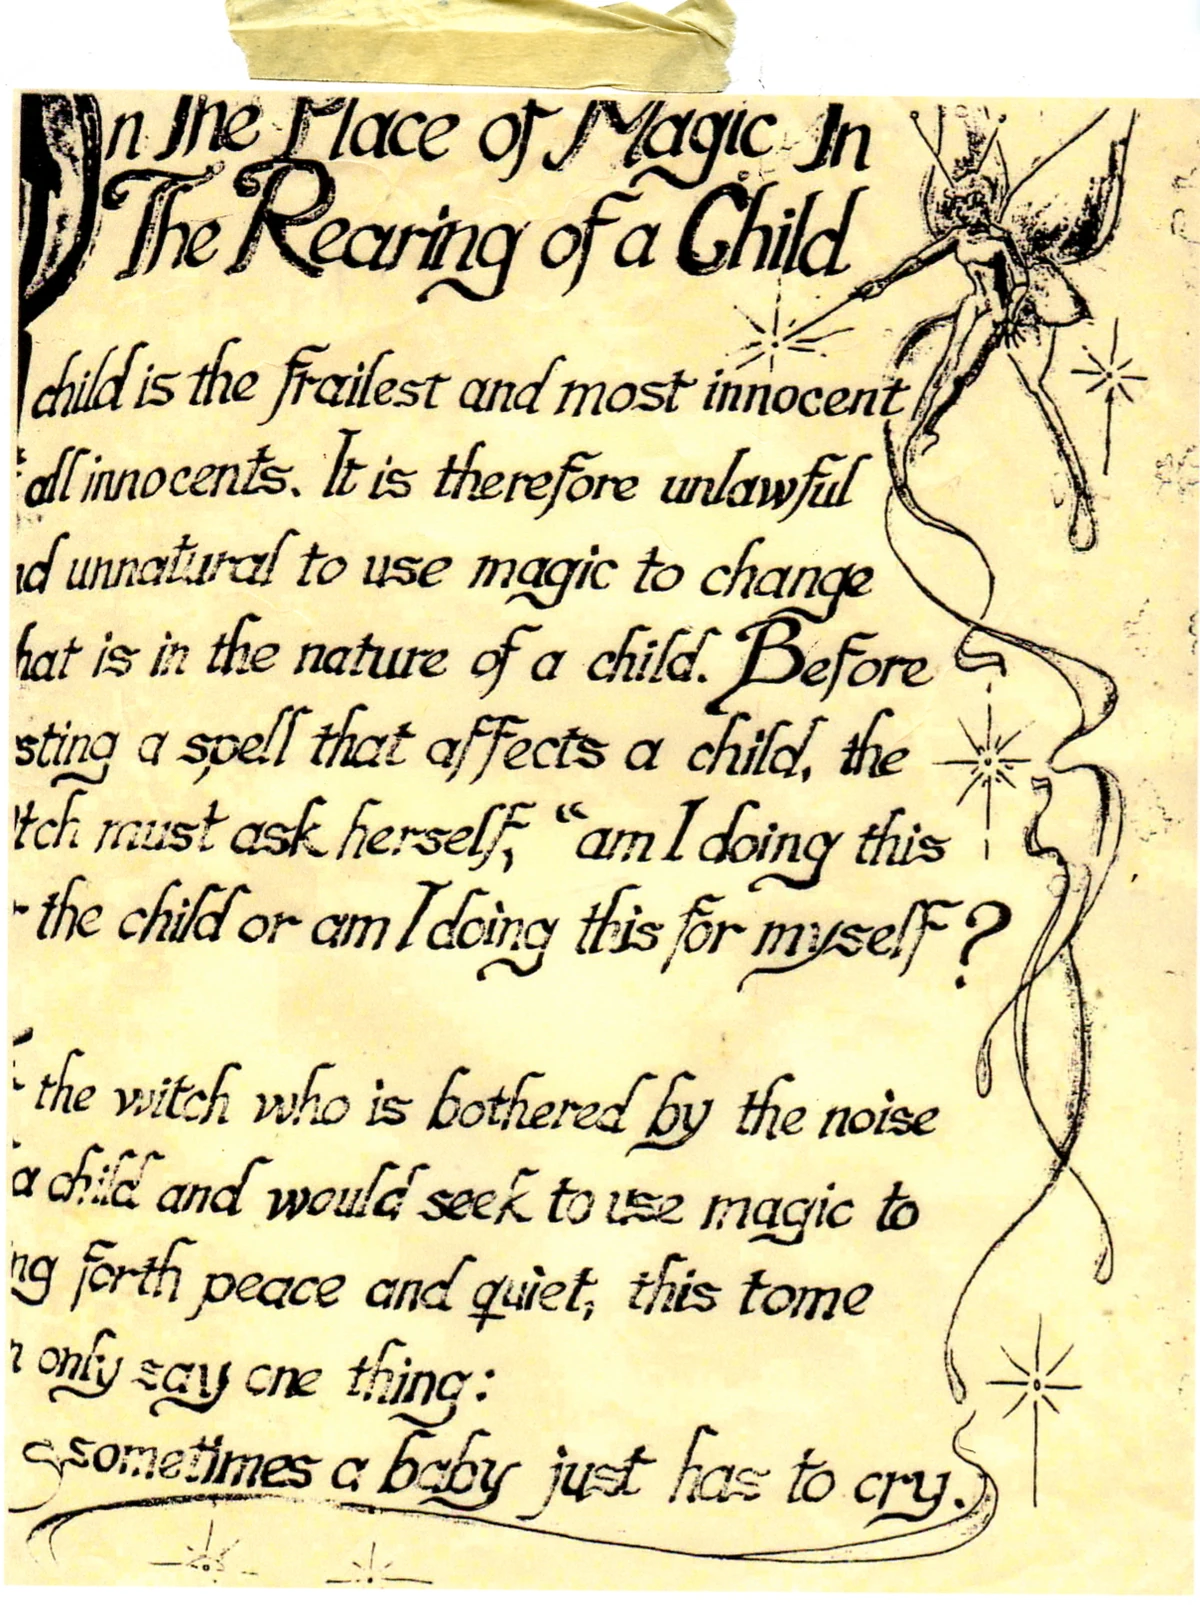 On The Place of Magic In
The Rearing of a Child
child is the frailest and most innocent
all innocents. It is therefore unlawful
nd unnatural to use magic to change
hat is in the nature of a child. Before
sting a spell that affects a child, the
tch must ask herself, “am I doing this
r the child or am I doing this for myself?
the witch who is bothered by the noise
a child and would seek to use magic to
ng forth peace and quiet, this tome
n only say one thing:
sometimes a baby just has to cry.